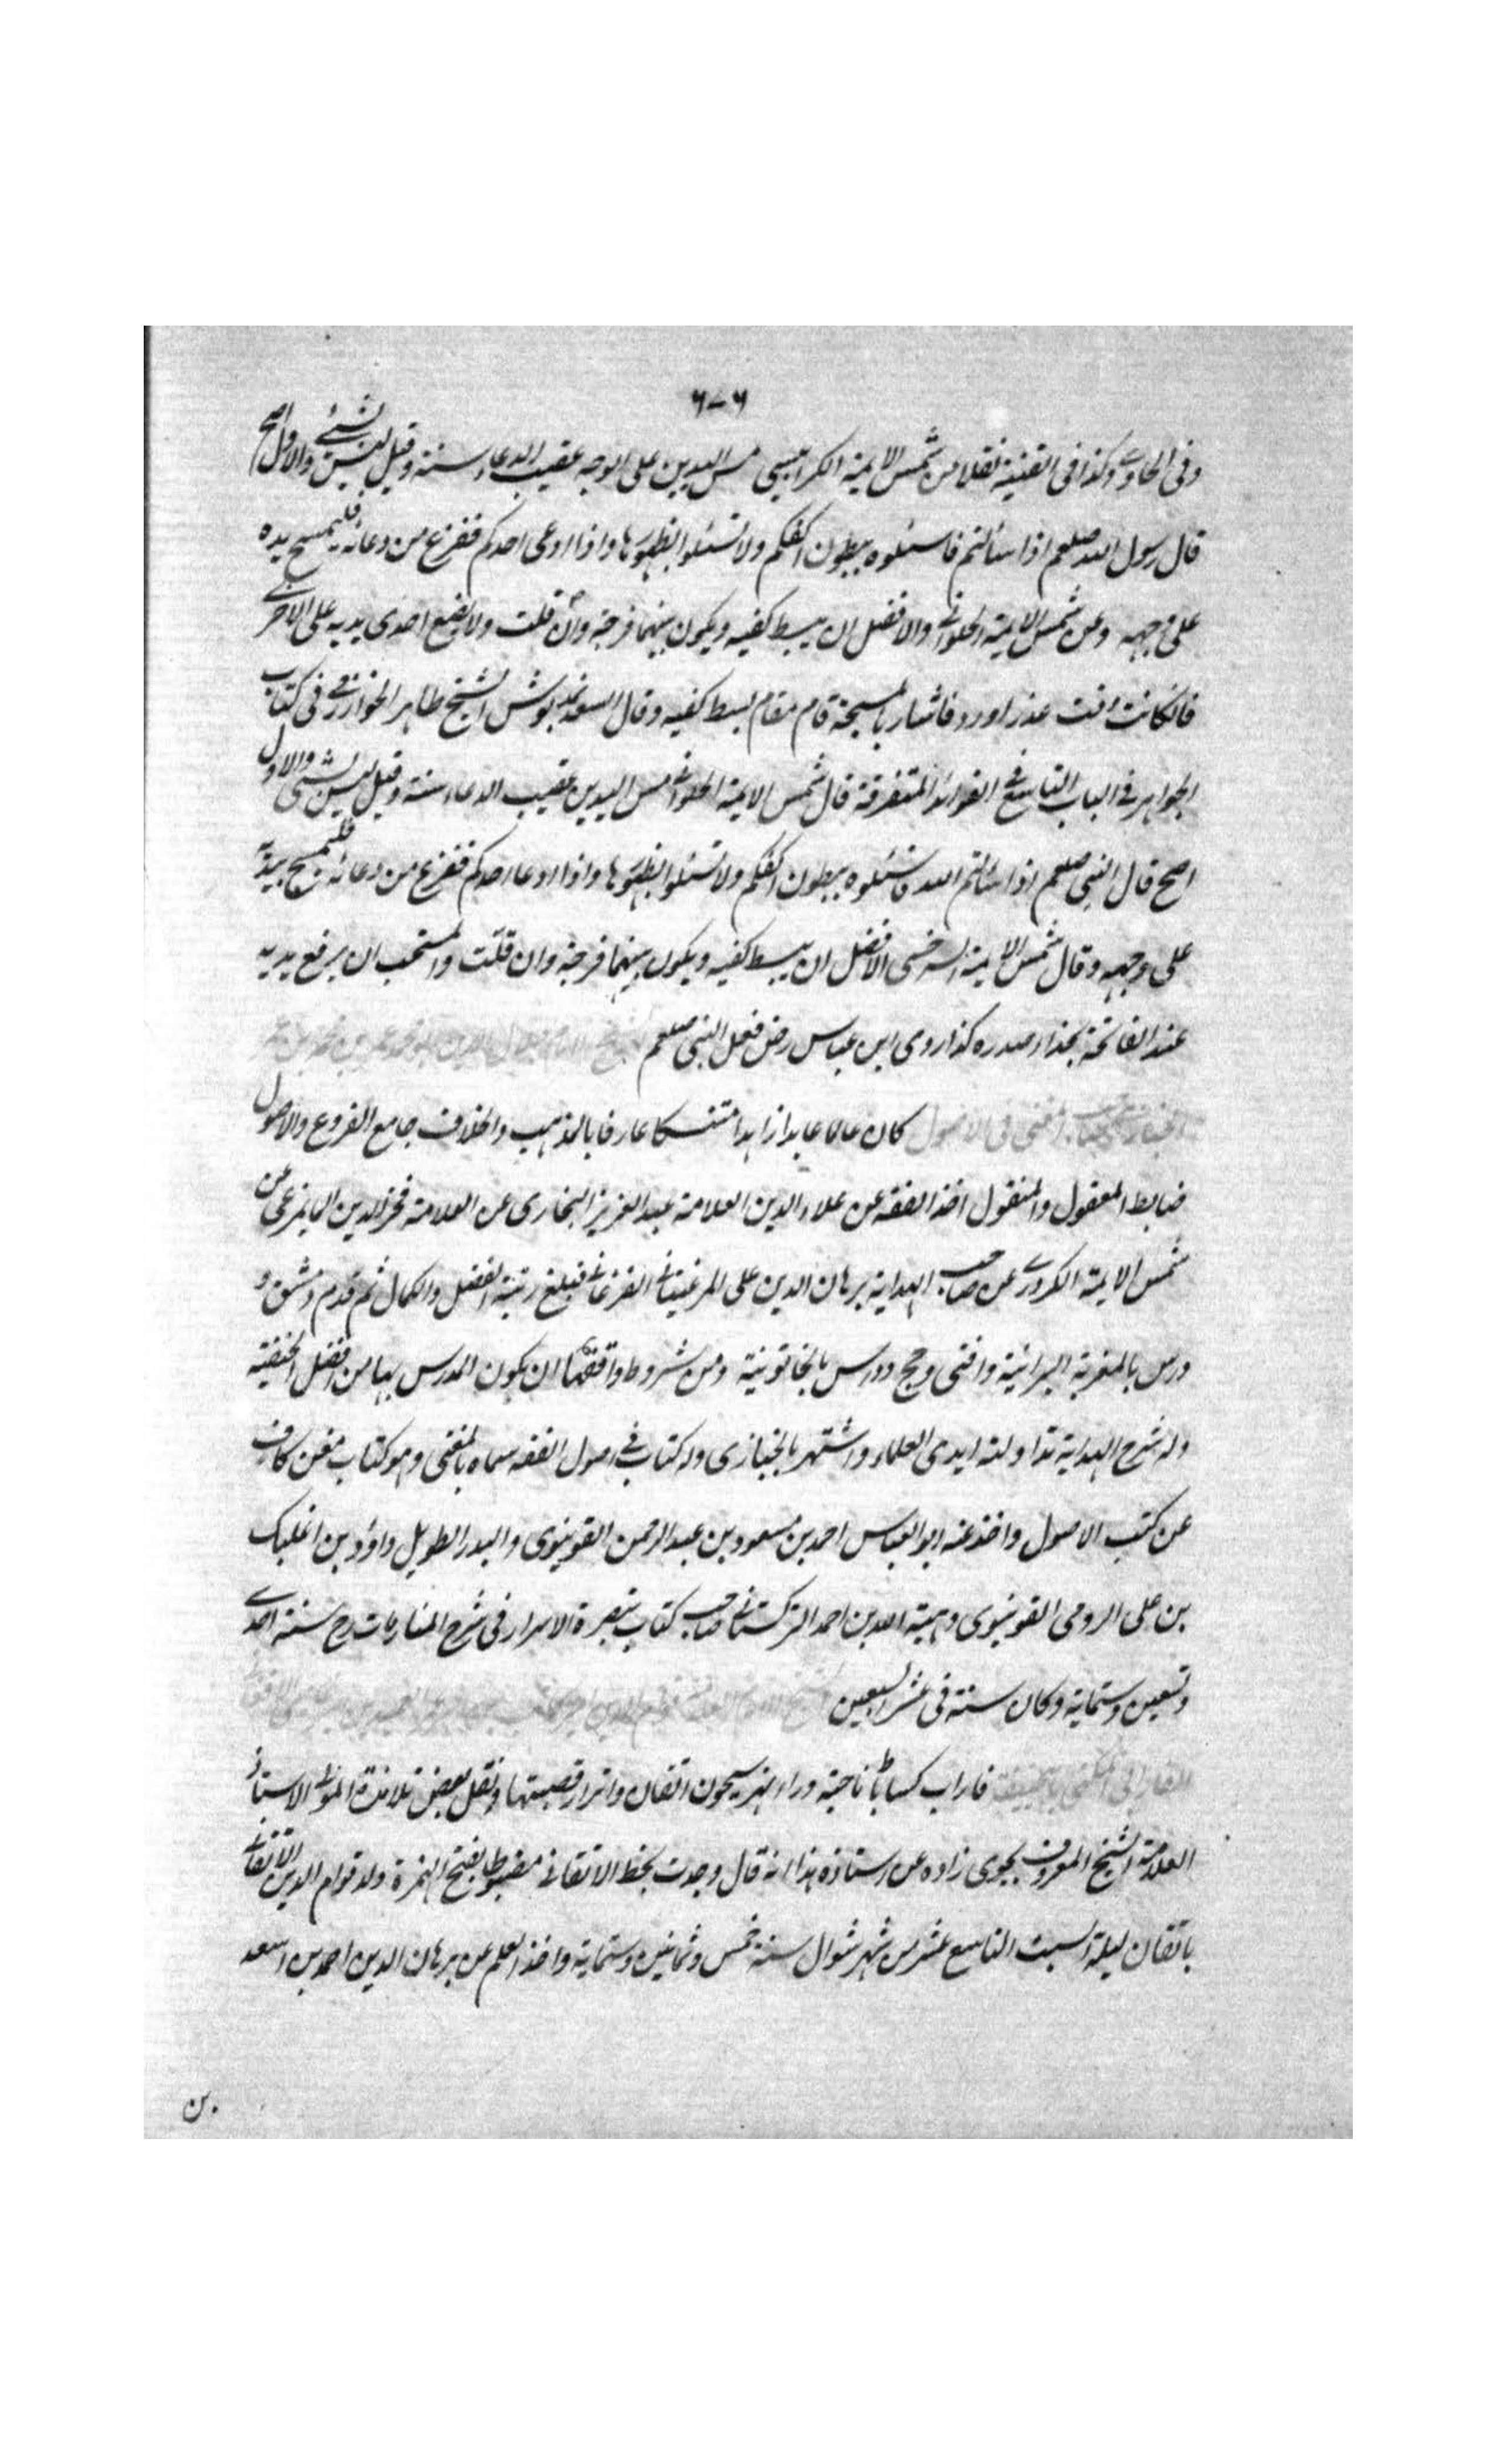 ٦٠٦
وفى الحاوى وكذا فى القنية نقلا من شمس الايمة الكرابيسى مس اليدين على الوجه عقيب الدعاء سنة وقيل ليس بشئ والاول اصح
قال رسول الله صلعم اذا سألتم فاسئلوه ببطون اكفكم ولا تسئلوا بظهورها واذا ادعى احدكم ففرغ من دعائه فليمسح يده
على وجهه وعن شمس الايمة الحلوانى والافضل ان يبسط كفيه ويكون بينهما فرجة وان قلت ولا يضع احدى يديه على الاخرى
فان كانت وقت عذر اورد فاشار بالمسبحة قام مقام بسط كفيه وقال الشيخ طاهر الخوارزمى فى كتاب
الجواهر فى الباب التاسع فى الفوائد المتفرقة قال شمس الايمة الحلوانى مس اليدين عقيب الدعاء سنة وقيل ليس بشئ والاول
اصح قال النبى صلعم اذا سألتم الله فاسئلوه ببطون اكفكم ولا تسئلوا بظهورها واذا ادعا احدكم ففرغ من دعائه فليمسح بيديه
على وجهه وقال شمس الايمة السرخسى الافضل ان يبسط كفيه ويكون بينهما فرجة وان قلت والمستحب ان يرفع يديه
عند الفاتحة بحذاء صدره كذا روى ابن عباس رض فعل النبى صلعم الشيخ الامام جلال الدين ابو محمد عمر بن محمد بن عمر
الخبازى صاحب المغنى فى الاصول كان عالما عابدا زاهدا متنسكا عارفا بالمذهب والخلاف جامع الفروع والاصول
ضابط المعقول والمنقول اخذ الفقه عن علاء الدين العلامة عبد العزيز البخارى عن العلامة فخر الدين المايمرغى عن
شمس الايمة الكردرى عن صاحب الهداية برهان الدين على المرغينانى الفرغانى فبلغ رتبة الفضل والكمال ثم قدم دمشق و
درس بالمغربة البرانية وافتى وحج ودرس بالخاتونية ومن شروط واقفها ان يكون المدرس بها من افضل الحنفية
وله شرح الهداية تداولته ايدى العلماء واشتهر بالخبازى وله كتاب فى اصول الفقه سماه بالمغنى وهو كتاب مغن كاف
عن كتب الاصول واخذ عنه ابو العباس احمد بن مسعود بن عبد الرحمن القونيوى والبدر الطويل داؤد بن اغلبك
بن على الرومى القونيوى وهبة الله بن احمد التركستانى صاحب كتاب تبصرة الاسرار فى شرح المنار مات رح سنة احدى
وتسعين وستماية وكان سنة فى عشر السبعين الشيخ الامام قوام الدين امير كاتب بن امير عمر العميد بن امير غازى الاتقانى
الفارابى المكنى بابى حنيفة فاراب كساباط ناحية وراء نهر سيحون اتقان واترار قصبتها ونقل بعض تلامذة المولى الاستاذ
العلامة الشيخ المعروف بجوى زاده عن استاذه هذا انه قال وجدت بخط الاتقانى مضبوطا بفتح الهمزة ولد قوام الدين الاتقانى
باتقان ليلة السبت التاسع عشر من شهر شوال سنة خمس وثمانين وستماية واخذ العلم عن برهان الدين احمد بن اسعد
بن